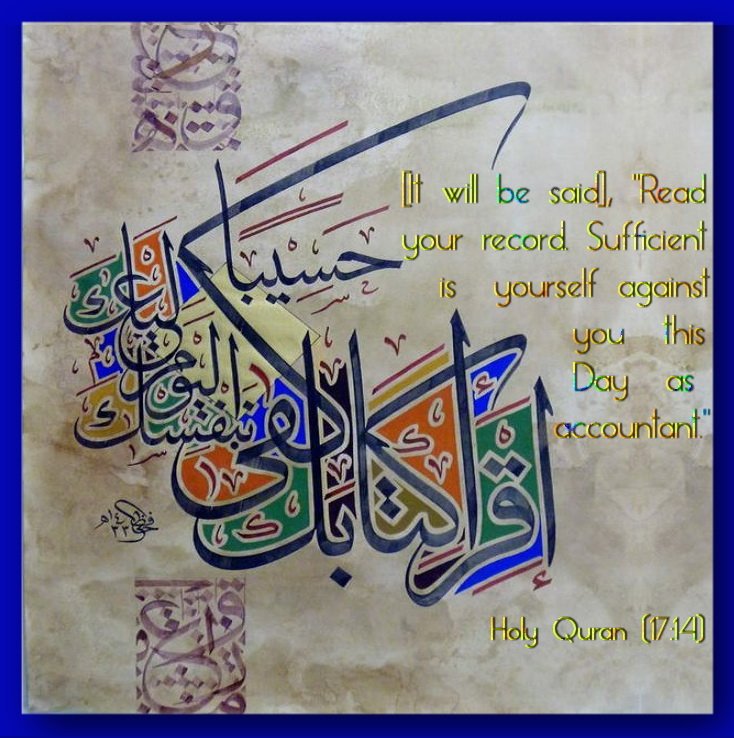 اقرأ كتابك كفى
بنفسك اليوم عليك
حسيبا
[It will be said], "Read
your record. Sufficient
is yourself against
you this
Day as
accountant."
Holy Quran (17:14)